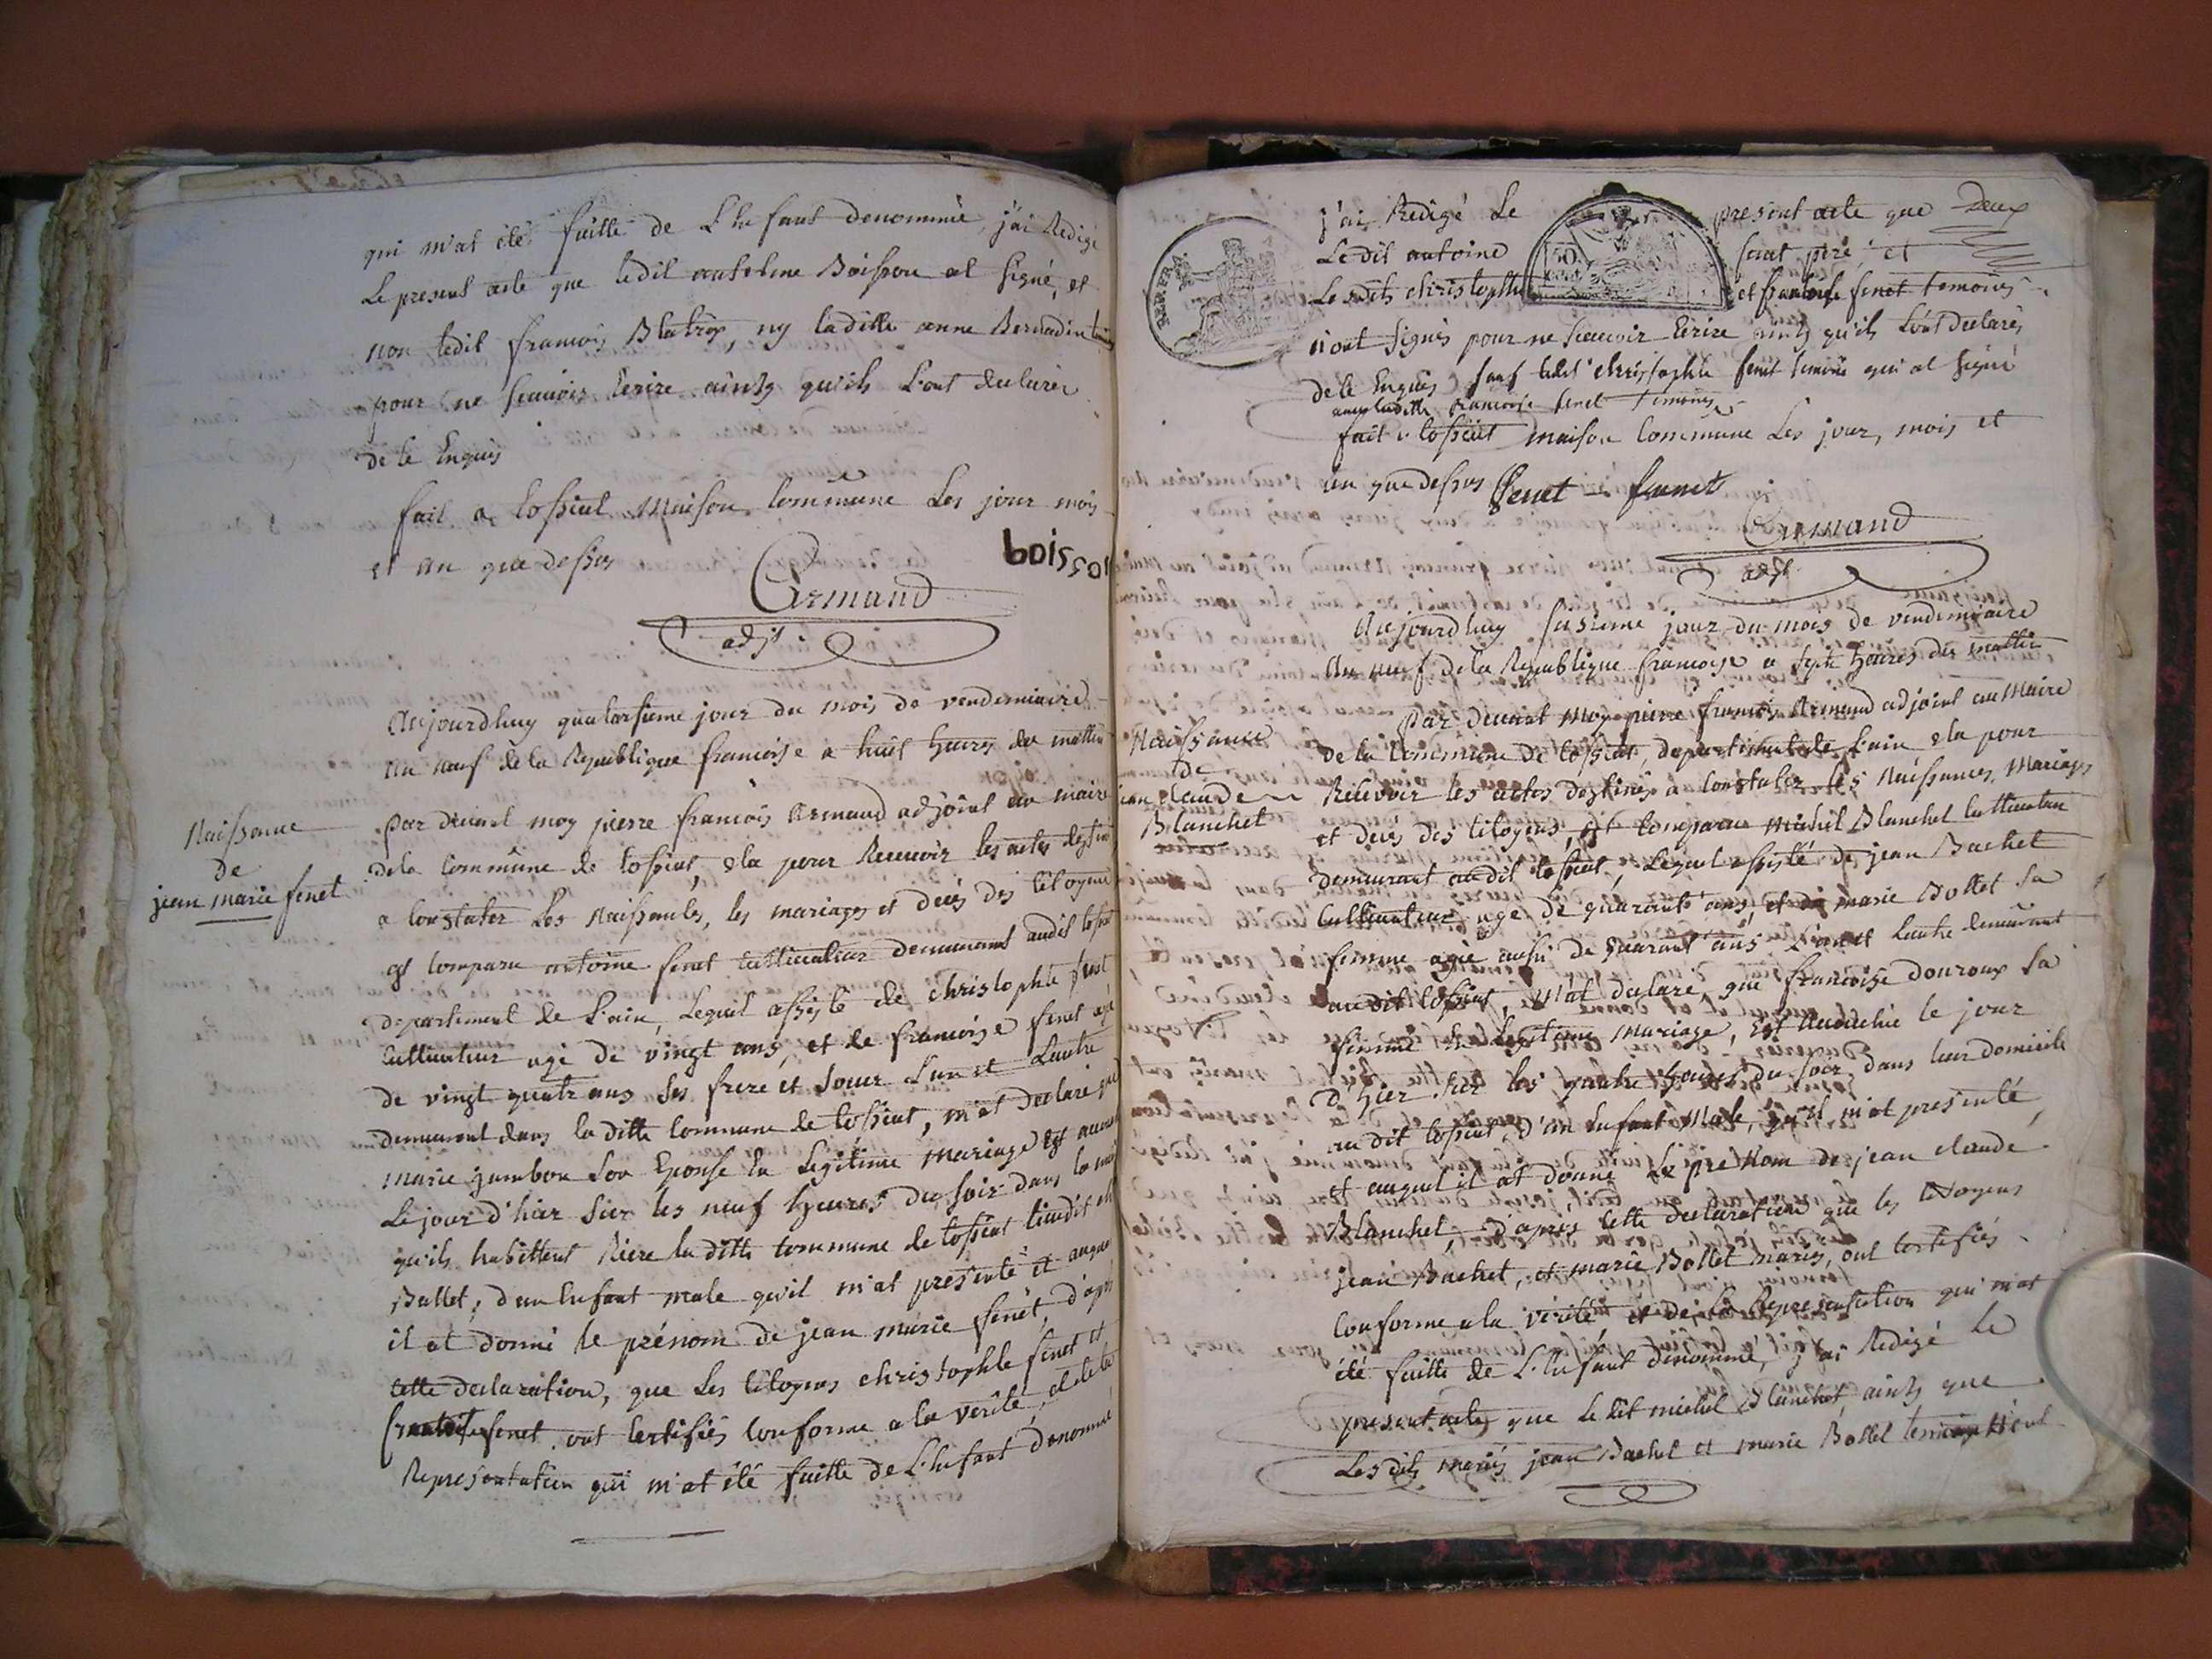 qui m'at été faitte de L'Enfant denommée, j'ai Redigé
Le present acte que ledit anthelme Boisson at signé, et
non ledit francois Blatrix, ny laditte anne Bernadin
pour ne scauoir Ecrire aintz qu'ils L'ont declarer
de le Enquis
fait a Cossieut Maison Commune Les jour mois
et an que dessus
boisson
Armand
adjt
Aujourdhuy quatorsieme jour du mois de vendemiaire
an neuf de la Republique francoise a huit heures du mattin
Naissance
de
jean marie fenet
par devant moy pierre francois Armand adjoint au maire
dela Commune de Cossieut, Elu pour Recevoir les actes destinés
a Constater Les Naissances, les mariages et décès des Citoyens
est Comparu antoine fenet Cultivateur demeurant audit
departement de L'ain, Lequel assisté de christophle fenet
Cultivateur agé de vingt ans, et de francoise fenet agé
de vingt quatr ans ses frere et soeur L'un et L'autre
demeurant dans la ditte Commune de Cossieut, m'at declaré que
marie jambon son Epouse En Legitime Mariage Est
Le jour d'hier sier les neuf heures du soir dans la
qu'ils habittent Riere la ditte Commune de Cossieut lieudit
Ballet, d'un Enfant male qu'il m'at presenté et auquel
il at donné le prénom de jean marie fenet, d'après
cette declaration, que Les Citoyens christophle fenet et
francoise fenet ont Certifiés Conforme a la verité, et de la
Representation qui m'at été faitte de L'Enfant denommé
j'ai Redigé Le present acte que Deux
Ledit antoine fenet pere, et
Lesdits christophle et francoise fenet temoins
n'ont signés pour ne scauoir Ecrire aintz qu'ils L'ont declarés
de le Enquis sauf ledit christophle fenet temoin qui at signé
avec laditte francoise fenet temoins
fait a Cossieut maison Commune Les jour, mois et
an que dessus fenet fenet
Armand
adjt
Aujourdhuy jour du mois de vendemiaire
An neuf de la Republique francoise a sept heures du mattin
Naissance
de
jean claude
Blanchet
par devant moy pierre francois Armand adjoint au Maire
de la Commune de Cossieut, departement de L'ain Elu pour
Recevoir les actes destinés a Constater les Naissances, Mariages
et decès des Citoyens, Est Comparu Michel Blanchet Cultivateur
demeurant audit Cossieut, Lequel assisté de jean Bachet
Cultivateur agé de quarante ans, et de marie Bollet sa
femme agée aussi de quarant ans L'un et L'autre demeurant
audit Cossieut, M'at declaré que francoise douroux sa
femme En Legitime Mariage, Est accouchée le jour
d'hier sier les quatre heures du soir, dans leur domicile
au dit Cossieut, d'un Enfant Male, qu'il m'at presenté,
et auquel il at donné Le pre Nom de jean claude
Blanchet, d'après Cette declaration que les Citoyens
jean Bachet, et marie Bollet mariés, ont Certifiés
Conforme a la verité et de la Representation qui m'at
été faitte de L'Enfant denommé, j'ai Redigé Le
present acte que Le dit michel Blanchet, aintz que
Les dits mariés jean Bachet et marie Bollet temoins n'ont